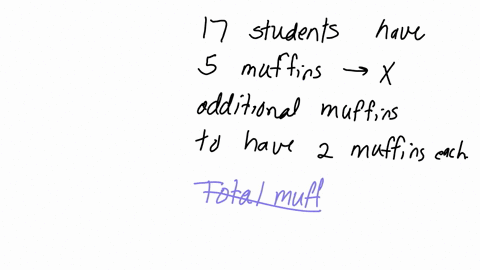 17 students have
5 muffins → X
additional muffins
to have 2 muffins each
Total muff